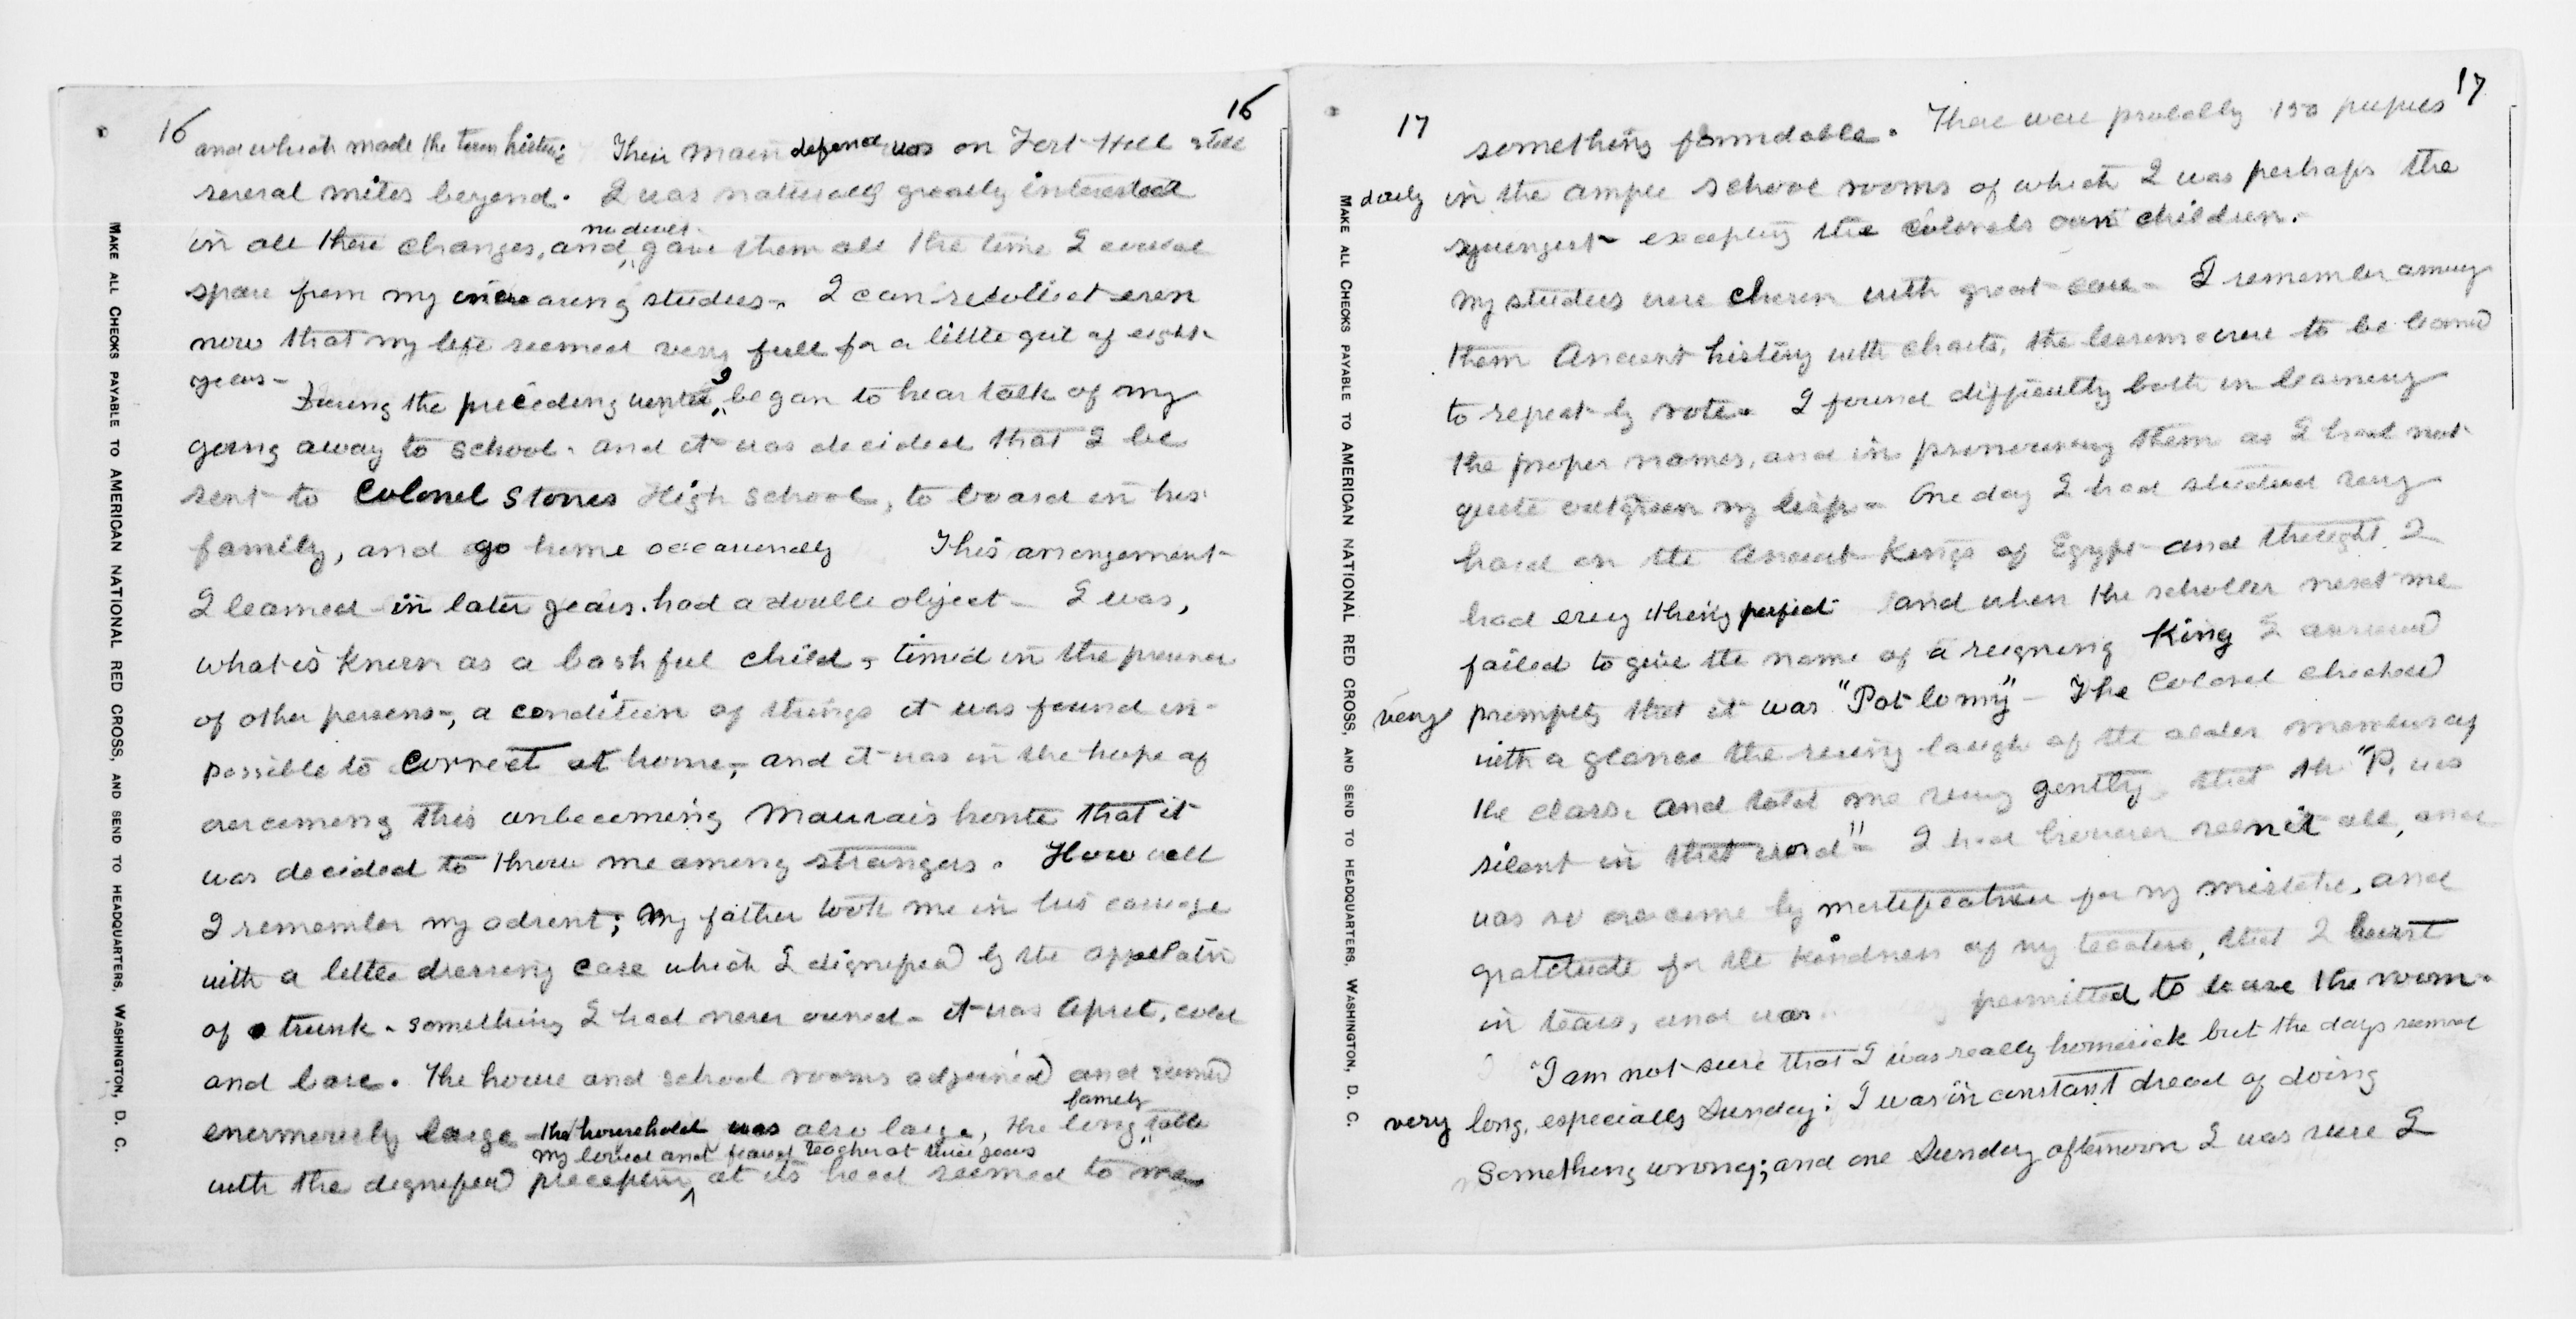 16
16
and which made the town historic Their main defence was on Fort Hill still
several miles beyond. I was naturally greatly interested
in all these changes, and no doubt gave them all the time I could
spare from my increasing studies. I can recollect even
now that my life seemed very full for a little girl of eight
years-
During the preceding winter I began to hear talk of my
going away to school. and it was decided that I be
sent to Colonel Stones High School, to board in his
family, and go home occasionally This arrangement
I learned in later years. had a double object - I was,
what is known as a bashful child, timid in the presence
of other persons-, a condition of things it was found im-
possible to correct at home, and it was in the hope of
overcoming this unbecoming mauvais honte that it
was decided to throw me among strangers. How well
I remember my advent; My father took me in his carriage
with a little dressing case which I dignified by the appelation
of trunk - something I had never owned - it was April, cold
and bare. The house and school rooms adjoined and seemed
enormously large - the household was also large, the long family table
with the dignified preceptor my loved and feared teacher at three years at its head seemed to me
MAKE ALL CHECKS PAYABLE TO AMERICAN NATIONAL RED CROSS, AND SEND TO HEADQUARTERS, WASHINGTON, D. C.
17
17
something formidable. There were probably 150 pupils
daily in the ample school rooms of which I was perhaps the
youngest - excepting the Colonels own children.
My studies were chosen with great care - I remember among
them Ancient history with charts, the lessons were to be learned
to repeat by rote. I found difficulty both in learning
the proper names, and in pronouncing them as I had not
quite outgrown my lisp - One day I had studied very
hard on the Ancient Kings of Egypt and thought I
had every thing perfect and when the scholar next me
failed to give the name of a reigning King I answered
very promptly that it was "Pot lomy" - The Colonel checked
with a glance the rising laugh of the older members of
the class. and told me very gently that the "P. was
silent in that word" - I had however seen it all, and
was so overcome by mortification for my mistake, and
gratitude for the kindness of my teacher, that I burst
in tears, and was permitted to leave the room.
"I am not sure that I was really homesick but the days seemed
very long, especially Sunday: I was in constant dread of doing
something wrong; and one Sunday afternoon I was sure I
MAKE ALL CHECKS PAYABLE TO AMERICAN NATIONAL RED CROSS, AND SEND TO HEADQUARTERS, WASHINGTON, D. C.